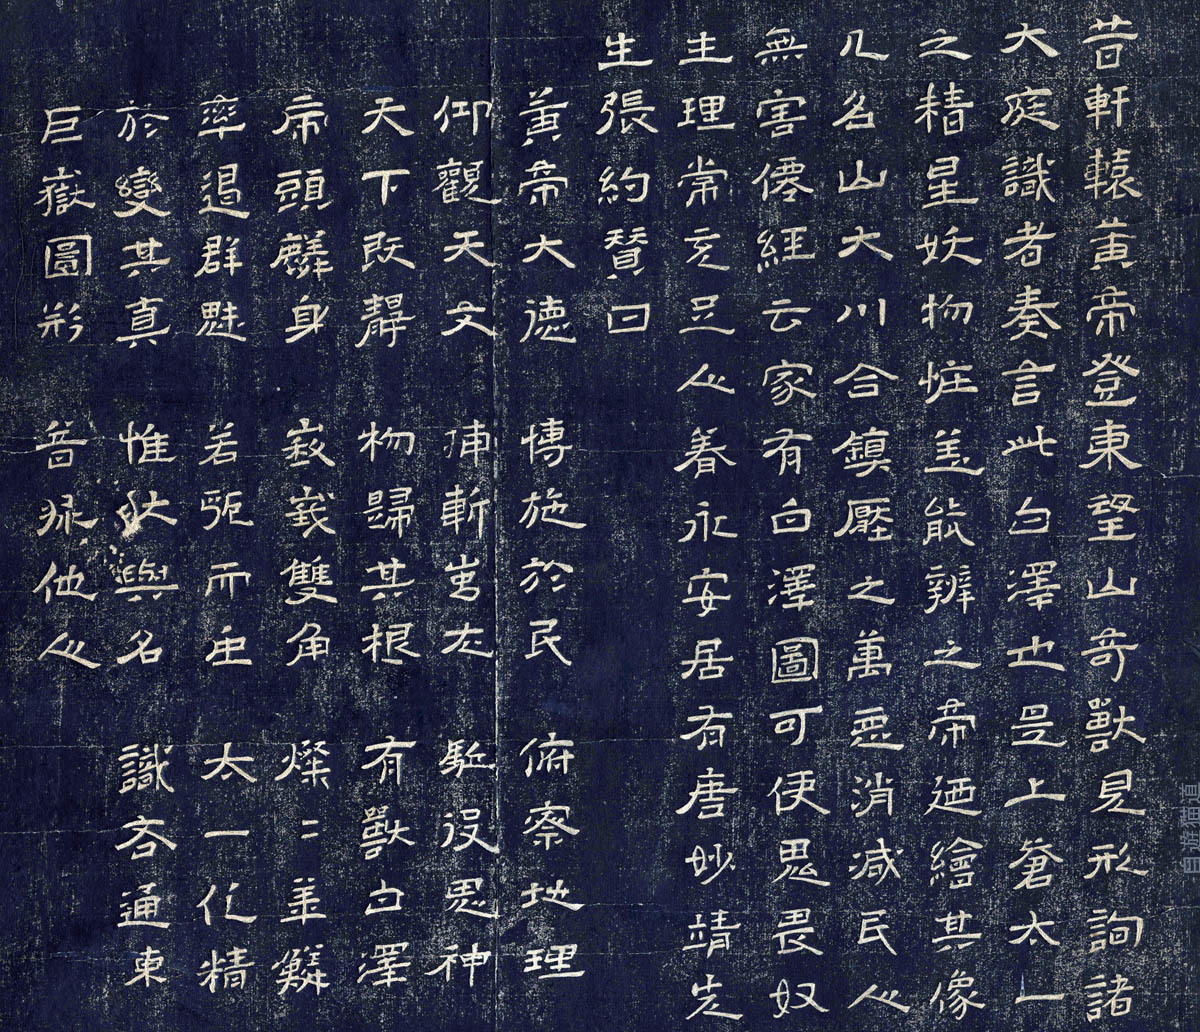 昔軒轅黃帝登東望山奇獸見形詢諸
大庭識者奏言此白澤也是上蒼太一
之精星妖物怪盖能辨之帝廼繪其像
凡名山大川合鎮壓之萬惡消減民人
無害僊經云家有白澤圖可使鬼畏奴
主理常充足人眷永安居有唐妙靖先
生張約賛曰
黃帝大德 博施於民 俯察地理
仰觀天文 捕斬蚩尤 駈役鬼神
天下既靜 物歸其根 有獸白澤
頭麟身 雙角 燦二
群魅 若而 太一化精
於變其真 惟狀與名 識通東
巨嶽圖形 普他人